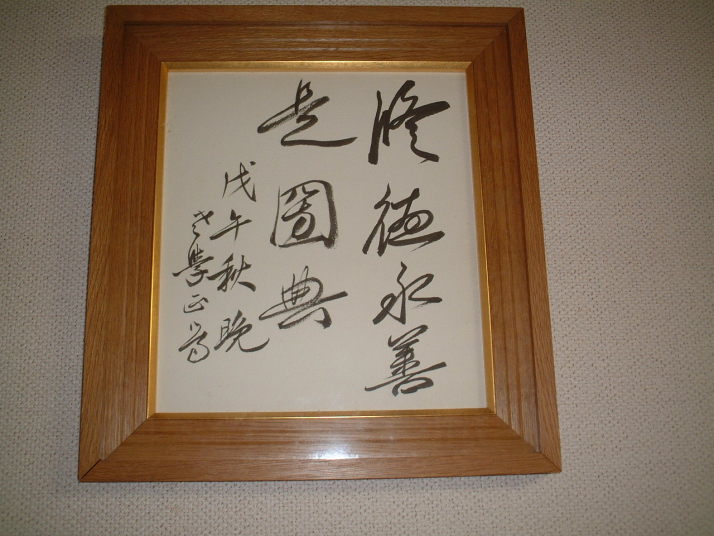 修德永善
是圖典
戊午秋晚
老學正